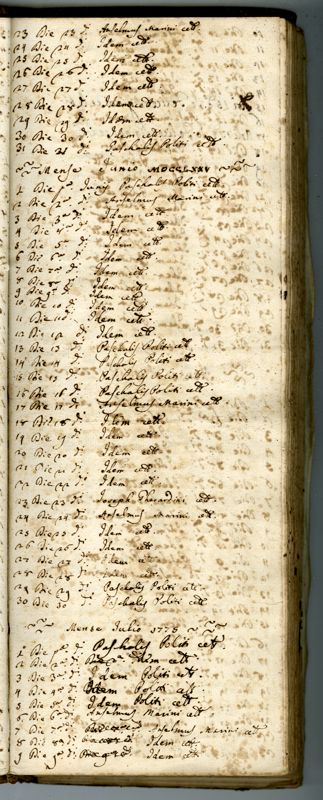 23 Die 23 d. Anselmus Marini cett.
24 Die 24 d. Idem cett.
25 Die 25 d. Idem cett.
26 Die 26 d. Idem cett.
27 Die 27 d. Idem cett.
28 Die 28 d. Idem cett.
29 Die 29 d. Idem cett.
30 Die 30 d. Idem cett.
31 Die 31 d. Paschalis Politi cett.
Mense Iunio MDCCLXXV
1 Die pa. Iunij Paschalis Politi cett.
2 Die 2a. d. Anselmus Marini cett.
3 Die 3a. d. Idem cett.
4 Die 4a. d. Idem cett.
5 Die 5a. d. Idem cett.
6 Die 6a. d. Idem cett.
7 Die 7a. d. Idem cett.
8 Die 8a. d. Idem cett.
9 Die 9a. d. Idem cett.
10 Die 10 d. Idem cett.
11 Die 11 d. Idem cett.
12 Die 12 d. Idem cett.
13 Die 13 d. Paschalis Politi cett.
14 Die 14 d. Paschalis Politi cett.
15 Die 15 d. Paschalis Politi cett.
16 Die 16 d. Paschalis Politi cett.
17 Die 17 d. Anselmus Marini cett.
18 Die 18 d. Idem cett.
19 Die 19 d. Idem cett.
20 Die 20 d. Idem cett.
21 Die 21 d. Idem cett.
22 Die 22 d. Idem cett.
23 Die 23 d. Joseph Gherardini cett.
24 Die 24 d. Anselmus Marini cett.
25 Die 25 d. Idem cett.
26 Die 26 d. Idem cett.
27 Die 27 d. Idem cett.
28 Die 28 d. Idem cett.
29 Die 29 d. Paschalis Politi cett.
30 Die 30 d. Paschalis Politi cett.
Mense Julio 1775
1 Die pa. d. Paschalis Politi cett.
2 Die 2a. d. Idem cett.
3 Die 3a. d. Idem Politi cett.
4 Die 4a. d. Idem Politi cett.
5 Die 5a. d. Idem Politi cett.
6 Die 6a. d. Anselmus Marini cett.
7 Die 7a. d. Anselmus Marini cett.
8 Die 8a. d. Idem cett.
9 Die 9a. d. Idem cett.